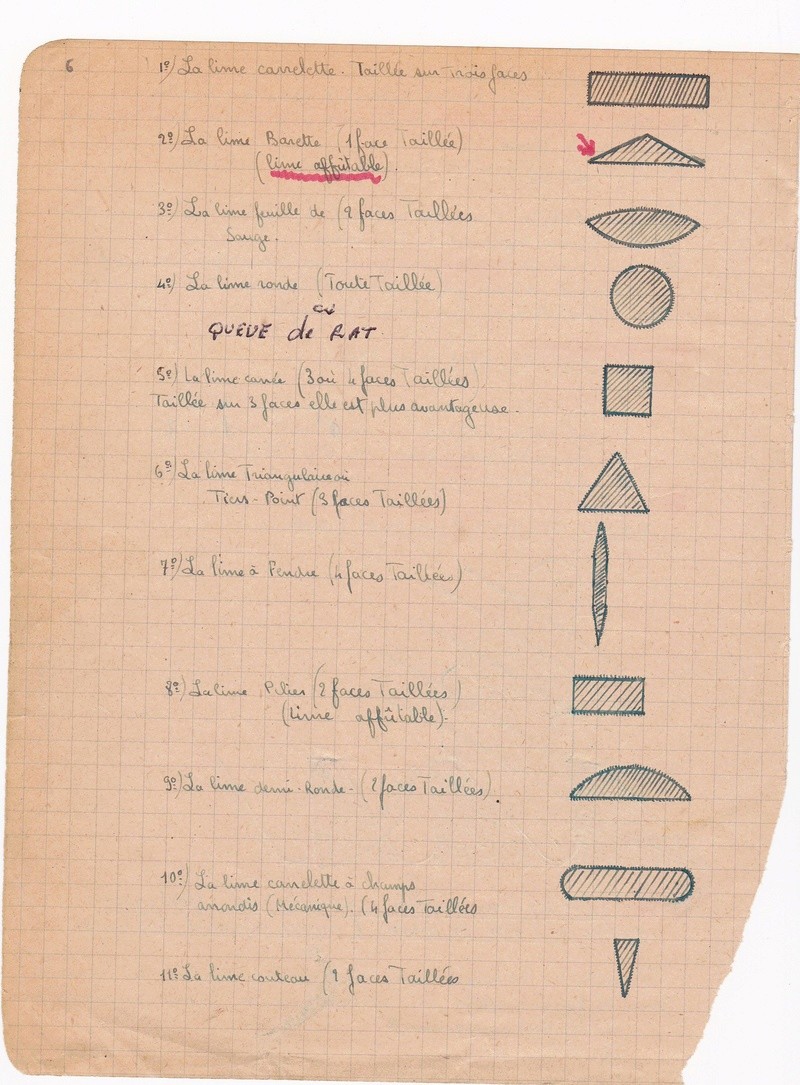 6
1º) La lime carrelette. Taillée sur Trois faces
2º) La lime Barette (1 face Taillée)
(lime affûtable).
3º) La lime feuille de (2 faces Taillées
Sauge.
4º) La lime ronde (Toute Taillée)
ou
QUEUE de RAT
5º) La lime carrée (3 ou 4 faces Taillées)
Taillée sur 3 faces elle est plus avantageuse.
6º) La lime Triangulaire ou
Tiers-Point (3 faces Taillées)
7º) La lime à Fendre (4 faces Taillées)
8º) La lime Piliers (2 faces Taillées)
(Lime affûtable).
9º) La lime demi-Ronde - (2 faces Taillées)
10º) La lime carrelette à champs
arrondis (Mécanique). (4 faces Taillées
11º La lime couteau (2 faces Taillées